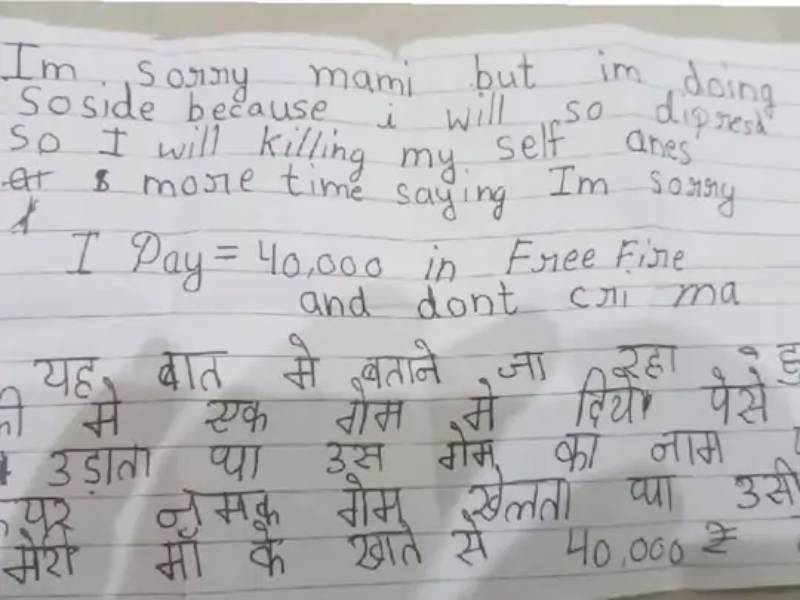 Im sorry mami but im doing
Soside because i will so dipresh
So I will killing my self anes
more time saying Im sorry
I Pay = 40,000 in Free Fire
and dont cri ma
यह बात मे बताने जा रहा हु
की मे एक गेम मे दिये पेसे
उड़ाता था उस गेम का नाम
नमक गेम खेलता था उसी
मेरी माँ के खाते से 40,000 ₹